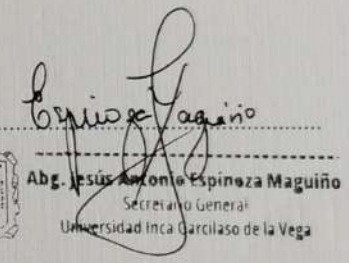 Espinoza Maguiño
Abg. Jesús Antonio Espinoza Maguiño
Secretario General
Universidad Inca Garcilaso de la Vega